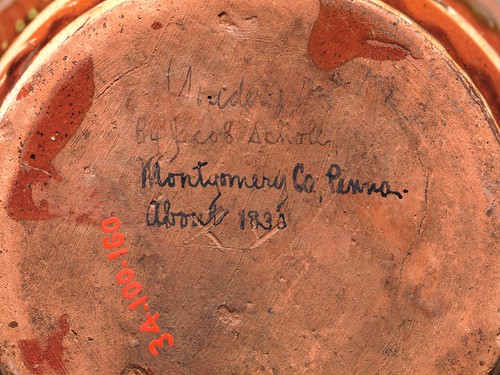 By Jacob Scholl,
Montgomery Co, Penna.
About 1830
34-100-160